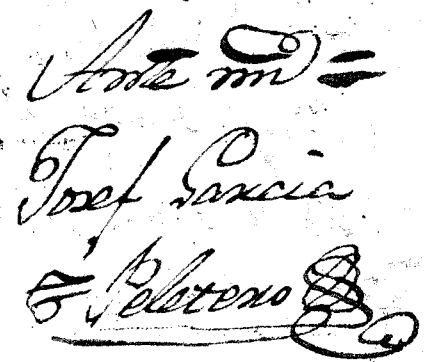 Ante mi =
Josef Garcia
Peletero